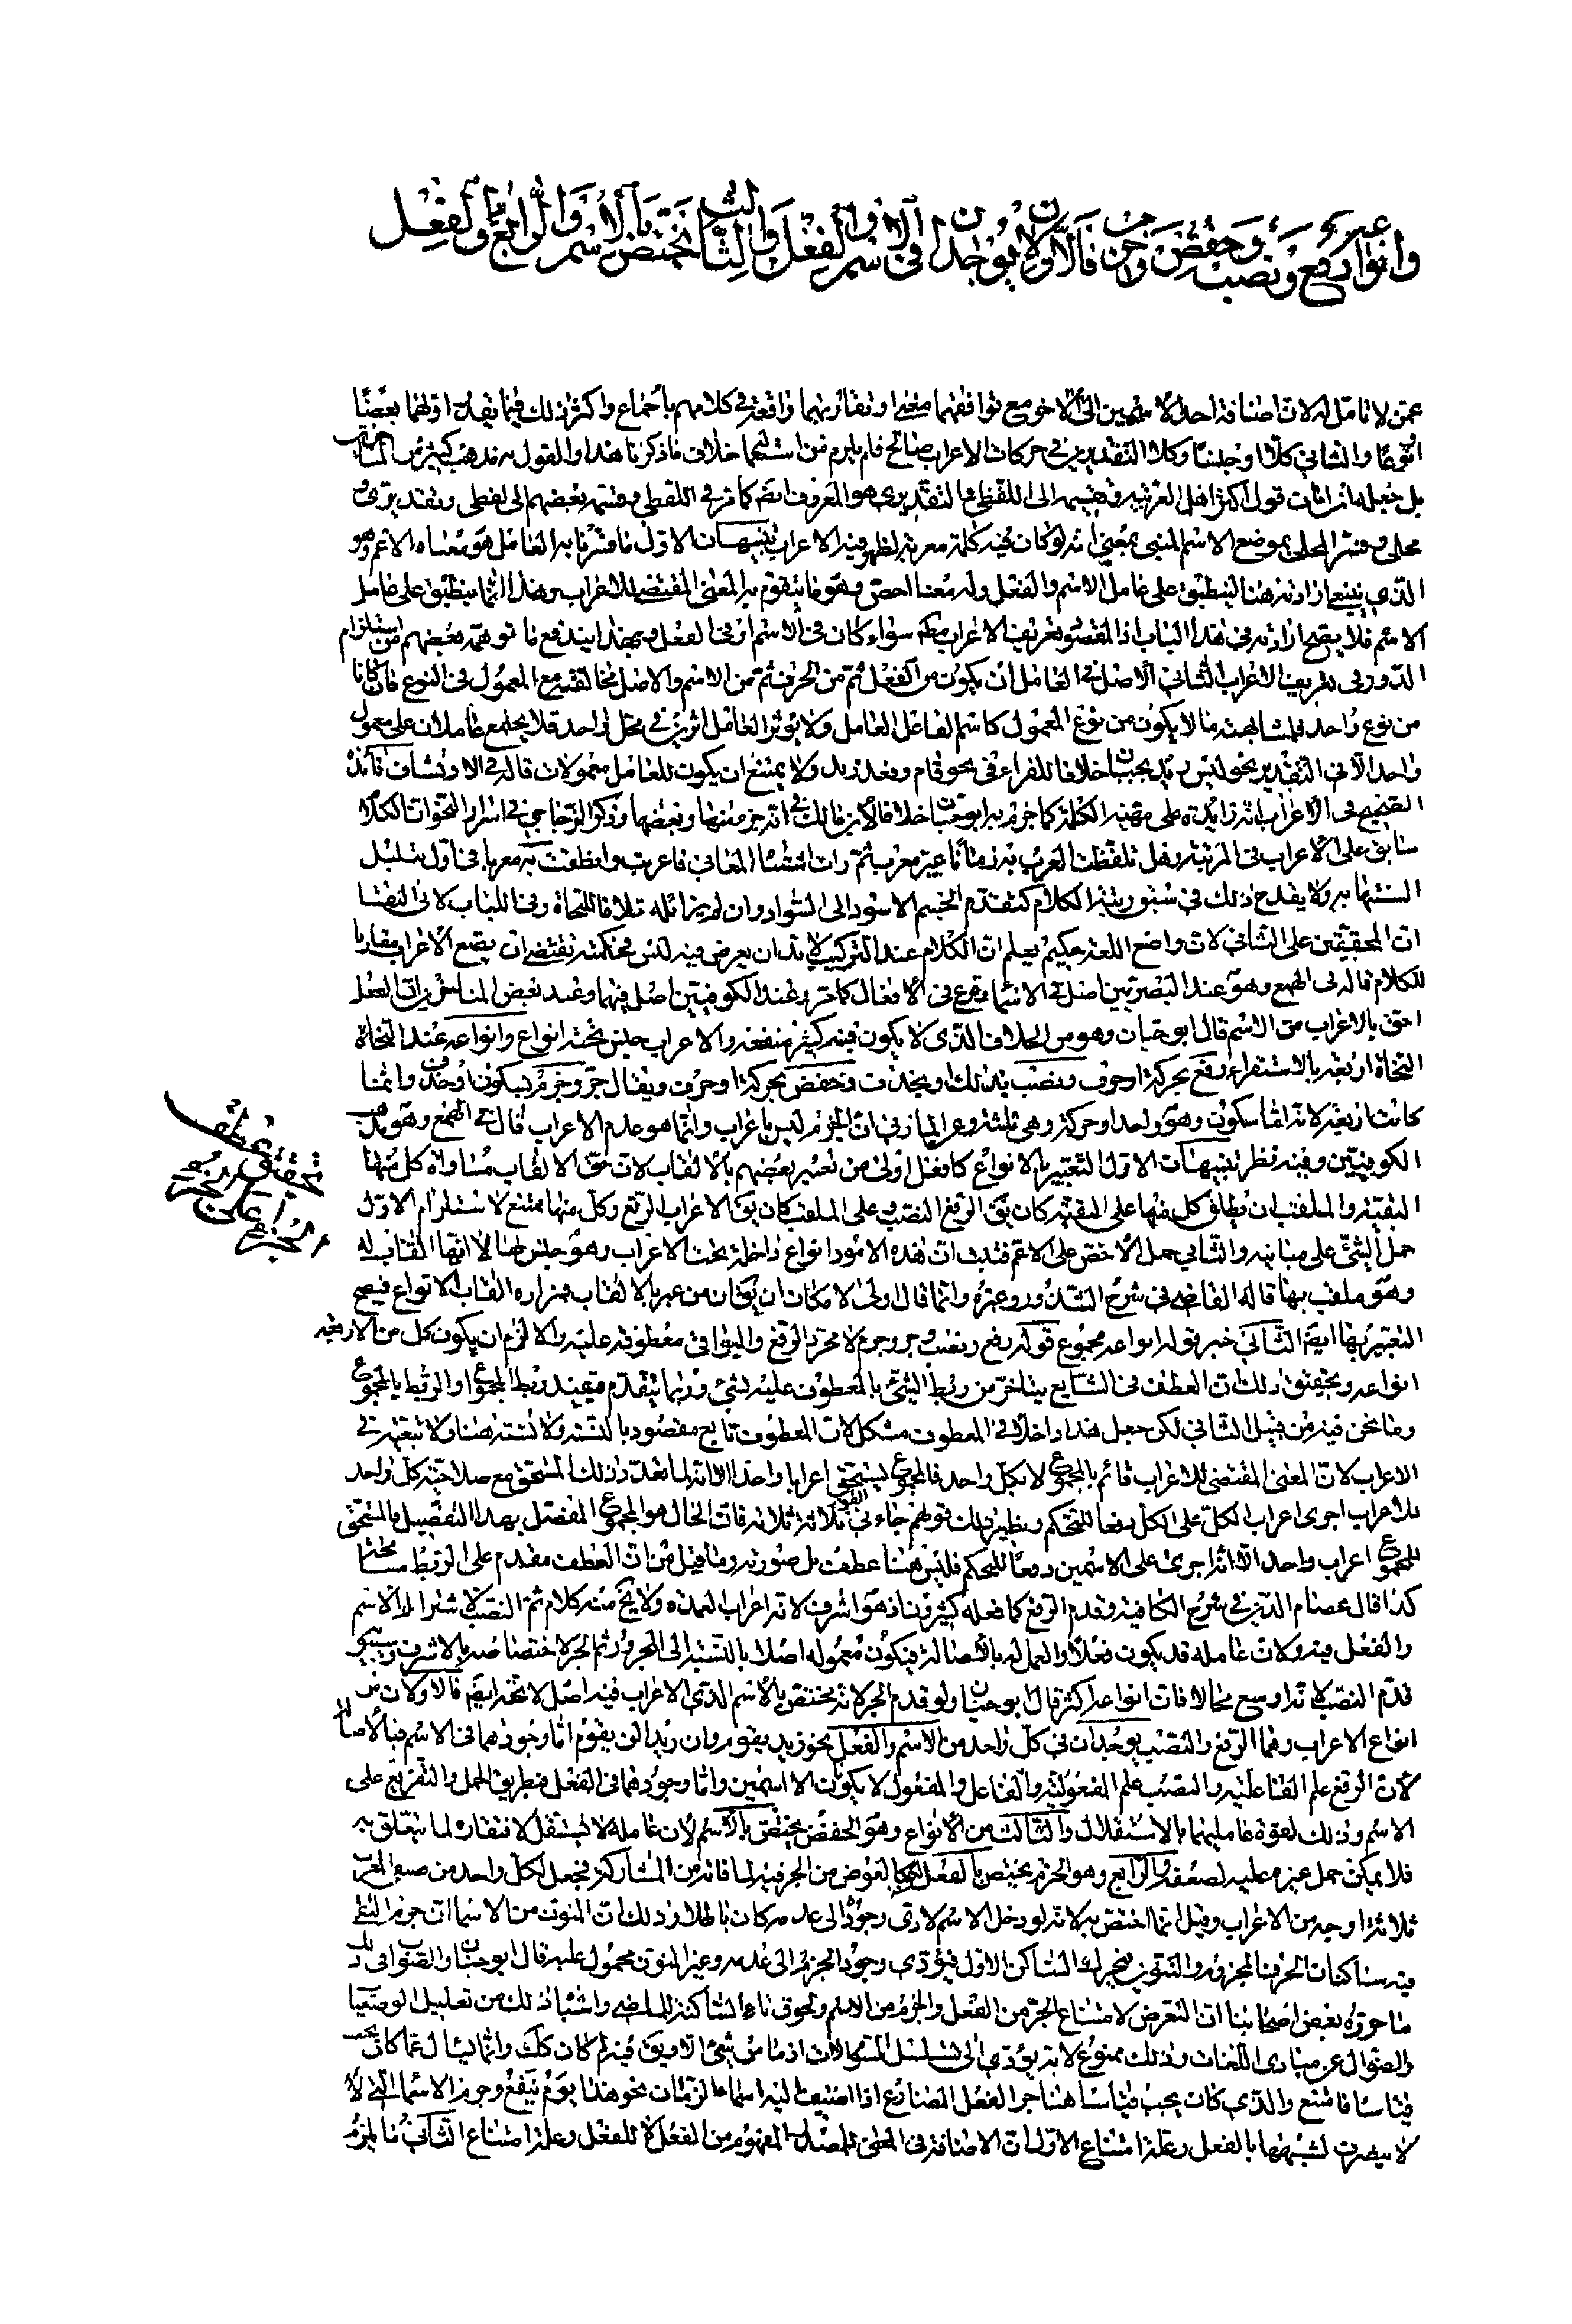 وانواعه رفع ونصب وخفض وجزم فالاولان يوجدان في الاسم والفعل والثالث يختص بالاسم والرابع بالفعل
عمن لا تامل له لان اضافة احد الاسمين الى الاخر مع توافقهما معنى او تقاربهما واقعة في كلامهم باجماع واكثر ذلك فيما يقدر اولهما بعضا
او نوعا والثاني كلا او جنسا وكلا التقديرين في حركات الاعراب صالح فلم يلزم من استعمالها خلاف ما ذكرنا هذا والقول به مذهب كثير من المتاخرين
بل جعله ابن اياز قول اكثر اهل العربية وتقسيمه الى اللفظي والتقديري هو المعروف ايضا كما مر في اللفظي وقسمه بعضهم الى لفظي وتقديري و
محلي وفسر المحلي بموضع الاسم المبني بمعنى انه لو كان فيه كلمة معربة لظهر فيه الاعراب تنبيهان الاول ما فسرنا به العامل هو معناه الاعم وهو
الذي ينبغي ارادته هنا لينطبق على عامل الاسم والفعل وله معنا اخص وهو ما يتقوم به المعنى المقتضي للاعراب وهذا انما ينطبق على عامل
الاسم فلا يصح ارادته في هذا الباب اذ المقصود تعريف الاعراب مطلقا سواء كان في الاسم او في الفعل وبهذا يندفع ما توهمه بعضهم من استلزام
الدور في تعريف الاعراب الثاني الاصل في العامل ان يكون من الفعل ثم من الحرف ثم من الاسم والاصل مخالفته مع المعمول في النوع فان كانا
من نوع واحد فلمشابهته ما لا يكون من نوع المعمول كاسم الفاعل العامل ولا يوثر العامل اثرين في محل واحد فلا يجتمع عاملان على معمول
واحد الا في التقدير نحو ليس زيد بجبان خلافا للفراء في نحو قام وقعد زيد ولا يمتنع ان يكون للعامل معمولان قاله في الارتشاف فائدة
الصحيح في الاعراب انه زائد على مهية الكلمة كما جزم به ابو حيان خلافا لابن مالك في انه جزء منها وبعضها وذكر الزجاجي في اسرار النحو ان الكلام
سابق على الاعراب في المرتبة وهل تلفظت العرب به زمانا غير معرب ثم رات اشتباه المعاني فاعربت او نطقت به معربا في اول تبلبل
السنتها به ولا يقدح ذلك في سبق رتبة الكلام كتقدم الجسم الاسود الى السواد وان لم يزائله خلاف للنحاة وفي اللباب لابي البقاء
ان المحققين على الثاني لان واضع اللغة حكيم يعلم ان الكلام عند التركيب لا بد ان يعرض فيه لبس فحكمته تقتضي ان يضع الاعراب مقارنا
للكلام قاله في الهمع وهو عند البصريين اصل في الاسماء فرع في الافعال كما مر وعند الكوفيين اصل فيهما وعند بعض المتاخرين ان الفعل
احق بالاعراب من الاسم قال ابو حيان وهو من الخلاف الذي لا يكون فيه كثير منفعة والاعراب جنس تحته انواع وانواعه عند النحاة
النحاة اربعة بالاستقراء رفع بحركة او حرف ونصب بذلك او بحذف وخفض بحركة او حرف ويقال جر وجزم بسكون او حذف وانما
كانت اربعة لانه اما سكون وهو واحد او حركة وهي ثلثة وعن المازني ان الجزم ليس باعراب وانما هو عدم الاعراب قال في الهمع وهو مذهب
الكوفيين وفيه نظر تنبيهات الاول التعبير بالانواع كما فعل اولى من تعبير بعضهم بالالقاب لان حق الالقاب مساواة كل منها
المقيد والملقب ان يطلق كل منها على المقيد كان يقال الرفع النصب وعلى الملقب كان يقال الاعراب الرفع وكل منها ممتنع لاستلزام الاول
حمل الشيء على مباينه والثاني حمل الاخص على الاعم فثبت ان هذه الامور انواع داخلة تحت الاعراب وهو جنس لها لا انها القاب له
وهو ملقب بها قاله الفاضي في شرح الشذور وغيره وانما قال اولى لامكان ان يقال من عبر بالالقاب فمراده القاب الانواع فيصح
التعبير بها ايضا الثاني خبر قوله انواعه مجموع قوله رفع ونصب وجر وجزم لا مجرد الرفع والبواقي معطوفة عليه والا لزم ان يكون كل من الاربعة
انواعه وتحقيق ذلك ان العطف في الشايع يتاخر من ربط الشيء بالمعطوف عليه لشيء وربما يتقدم فيفيد ربط المجموع او الربط بالمجموع
وما نحن فيه من قبيل الثاني لكن جعل هذا داخلا في المعطوف مشكل لان المعطوف تابع مقصود بالنسبة ولا نسبة هنا ولا تبعية في
الاعراب لان المعنى المقتضي للاعراب قائم بالمجموع لا بكل واحد فالمجموع ليستحق اعرابا واحدا الا انه لما تعدد ذلك المستحق مع صلاحية كل واحد
للاعراب اجرى اعراب الكل على الكل دفعا للتحكم ونظير ذلك قولهم جاءني القوم ثلاثة ثلاثة فان الحال هو المجموع المفصل بهذا التفصيل فالمستحق
للمجموع اعراب واحد الا انه اجرى على الاسمين دفعا للتحكم فليس هنا عطف بل صورته وما قيل من ان العطف مقدم على الربط مسامحة
كذا قال عصام الدين في شرح الكافية وقدم الرفع كما فعله كثيرون اذ هو اشرف لانه اعراب العمدة ولا يخ منه كلام ثم النصب لاشتراك الاسم
والفعل فيه ولان عامله قد يكون فعلا والعمل له بالاصالة فيكون معموله اصلا بالنسبة الى المجرور ثم الجر لاختصاصه بالاشرف وسيبويه
قدم النصب لانه اوسع مجالا فان انواعه اكثر قال ابو حيان ولو قدم الجر لانه مختص بالاسم الذي الاعراب فيه اصل لاتجه ايضا فالاولان من
انواع الاعراب وهما الرفع والنصب يوجدان في كل واحد من الاسم والفعل نحو زيد يقوم وان زيدا لن يقوم اما وجودهما في الاسم فبالاصالة
لان الرفع علم الفاعلية والنصب علم المفعولية والفاعل والمفعول لا يكونان الا اسمين واما وجودهما في الفعل فبطريق الحمل والتفريع على
الاسم وذلك لقوة عامليهما بالاستقلال والثالث من الانواع وهو الخفض يختص بالاسم لان عامله لا يستقل لافتقاره لما يتعلق به
فلا يمكن حمل غيره عليه لضعفه والرابع وهو الجزم يختص بالفعل ليكون كالعوض من الجر فيه لما فاته من المشاركة فيجعل لكل واحد من صنفي المعرب
ثلاثة اوجه من الاعراب وقيل انما اختص به لانه لو دخل الاسم لادى وجوده الى عدمه كان باطلا وذلك ان المنون من الاسماء ان جزم التقى
فيه ساكنان الحرف المجزوم والتنوين فيحرك الساكن الاول فيؤدي وجود الجزم الى عدمه وغير المنون محمول عليه قال ابو حيان والصواب في ذلك
ما حرره بعض اصحابنا ان التعرض لامتناع الجر من الفعل والجزم من الاسم ولحوق تاء التانيث الساكنة للماضي واشباه ذلك من تعليل الوضعيات
والسؤال عن مبادي اللغات وذلك ممنوع لانه يؤدي الى تسلسل السؤالات اذ ما من شيء الا ويقال فيه لم كان كذلك وانما يسال عما كان يجب
قياسا فامتنع والذي كان يجب قياسا هنا جر الفعل المضارع اذا اضيفت اليه اسماء الزمان نحو هذا يوم ينفع وجزم الاسماء التي
لا ينصرف لشبهها بالفعل وعلة امتناع الاول ان الاضافة في المعنى للمصدر المفهوم من الفعل لا للفعل وعلة امتناع الثاني ما يلزم
تحقيق عطف